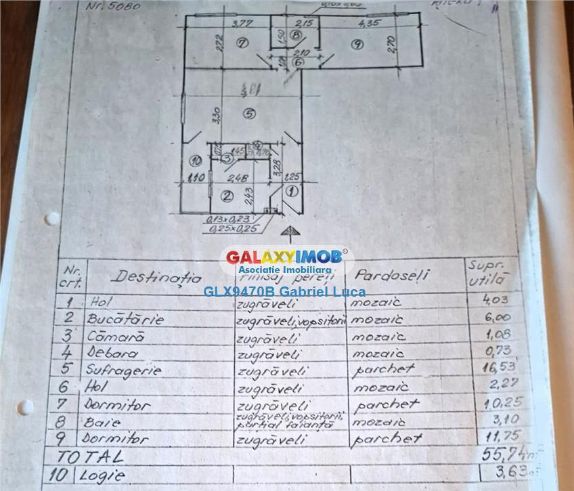 Nr. 5080
3,77
2,15
4,35
2,72
7
1,50
8
9
2,70
2,10
6
5
3,30
10
3
1,45
4
3,28
1,10
2,48
1,25
2
2,43
1
0,13x0,23
0,25x0,25
GALAXYIMOB
Asociatie Imobiliara
GLX9470B Gabriel Luca
Nr. crt. Destinația Finisaj pereți Pardoseli Supr. utilă
1 Hol zugrăveli mozaic 4,03
2 Bucătărie zugrăveli, vopsitorii mozaic 6,00
3 Cămară zugrăveli mozaic 1,08
4 Debara zugrăveli mozaic 0,73
5 Sufragerie zugrăveli parchet 16,53
6 Hol zugrăveli mozaic 2,27
7 Dormitor zugrăveli parchet 10,25
8 Baie zugrăveli, vopsitorii, parțial faianță mozaic 3,10
9 Dormitor zugrăveli parchet 11,75
TOTAL 55,74
10 Logie 3,63